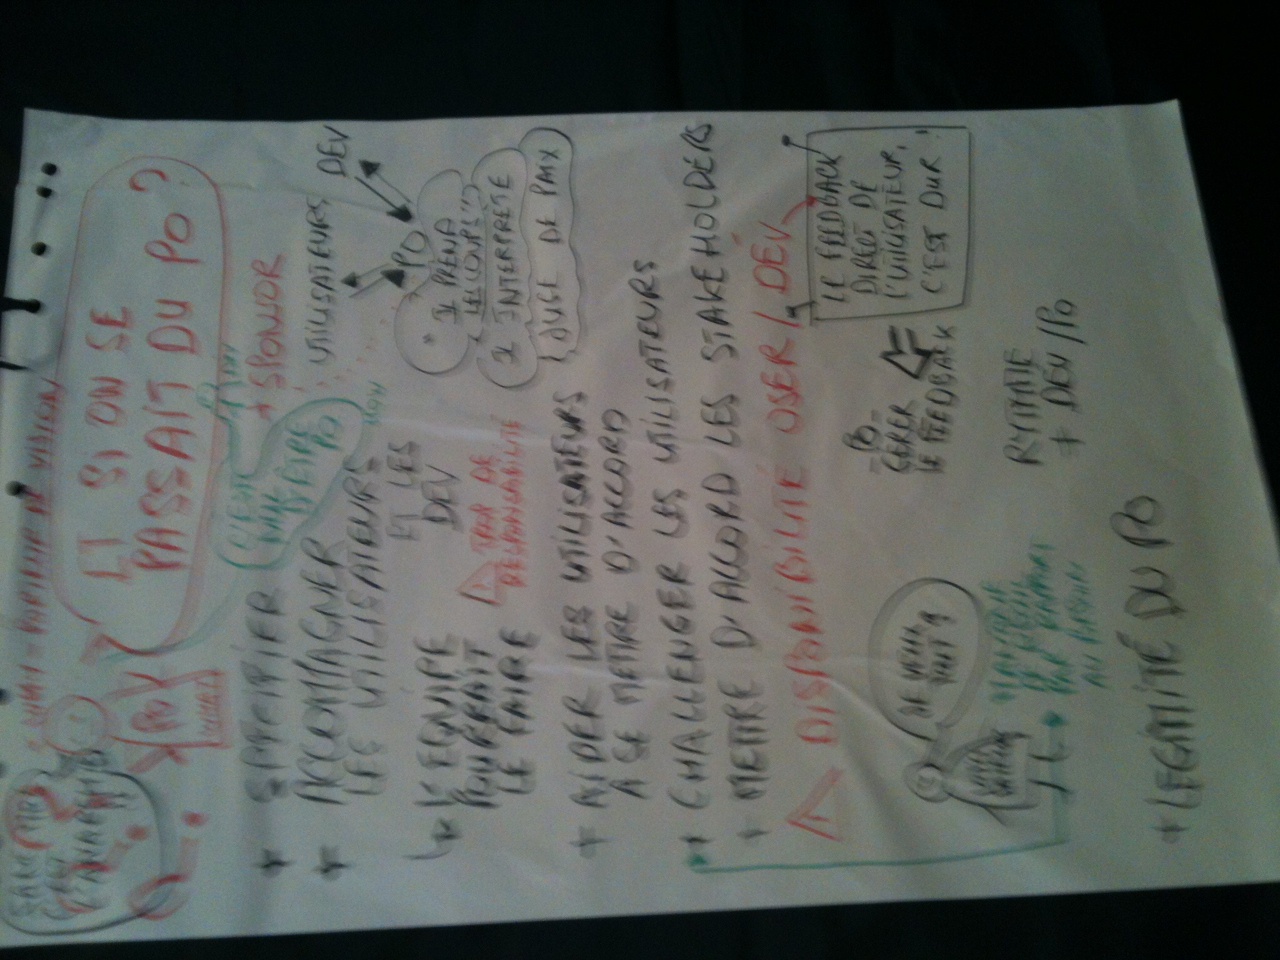 SANS MOI
C'EST
L'ANARCHIE
!!
+ WHAT = PORTEUR DE VISION
ET SI ON SE
PASSAIT DU PO ?
PO
WHAT
C'EST
NUL
D'ÊTRE
PO
DEV
HOW
+ SPONSOR
+ SPÉCIFIER
+ ACCOMPAGNER
LES UTILISATEURS
ET LES
DEV
L'EQUIPE
POURRAIT
LE FAIRE
TROP DE
RESPONSABILITÉ
UTILISATEURS
DEV
PO
IL PREND
LES COUPS !!
IL INTERPRÈTE
JUGE DE PAIX
+ AIDER LES UTILISATEURS
A SE METTRE D'ACCORD
+ CHALLENGER LES UTILISATEURS
+ METTRE D'ACCORD LES STAKEHOLDERS
DISPONIBILITÉ USER / DÉV
LE FEEDBACK
DIRECT DE
L'UTILISATEUR,
C'EST DUR !
PO
GÉRER
LE FEEDBACK
JE VEUX
TOUT !
MANQUE
DE RECUL
PAR RAPPORT
AU BESOIN
RYTHME
+ DEV / PO
+ LEGITIMITÉ DU PO